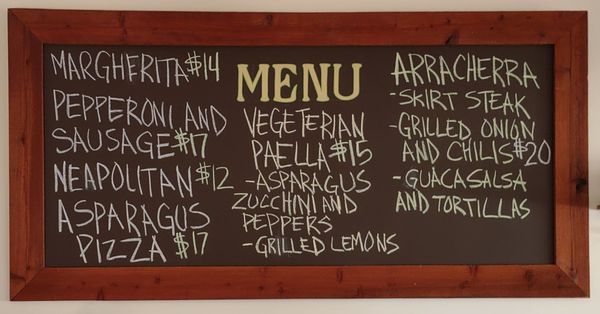 MARGHERITA $14
PEPPERONI AND
SAUSAGE $17
NEAPOLITAN $12
ASPARAGUS
PIZZA $17
MENU
VEGETERIAN
PAELLA $15
-ASPARAGUS
ZUCCHINI AND
PEPPERS
-GRILLED LEMONS
ARRACHERRA
-SKIRT STEAK
-GRILLED ONION
AND CHILIS $20
-GUACASALSA
AND TORTILLAS